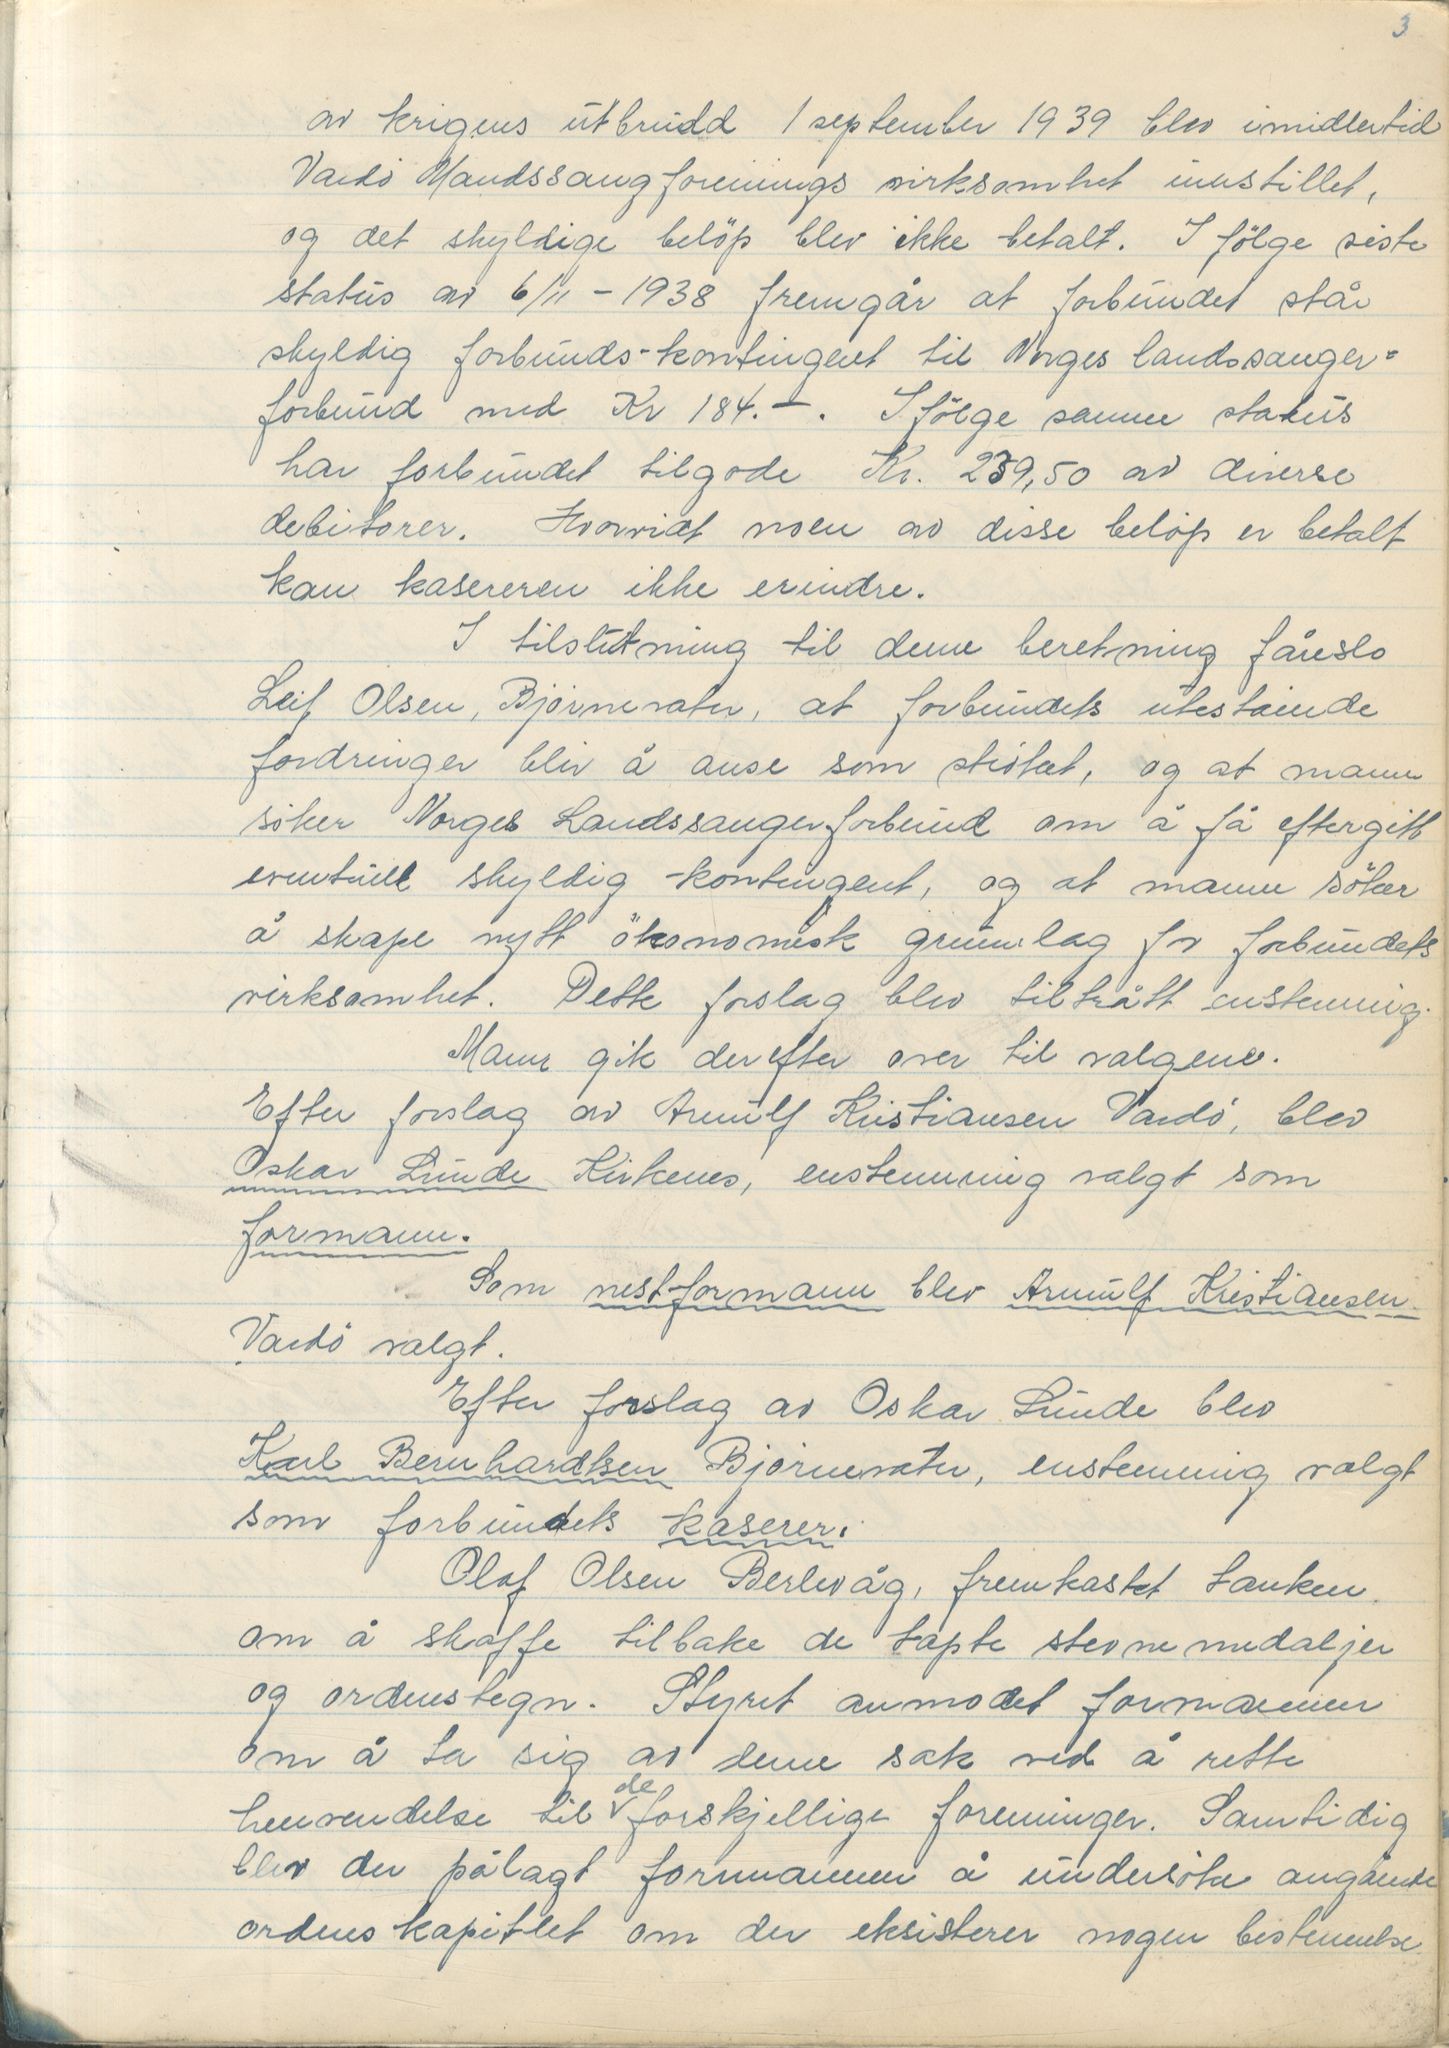 3
av krigens utbrudd 1 september 1939 blev imidlertid
Vardö Mandssangforenings virksomhet innstillet,
og det skyldige belöp blev ikke betalt. I fölge siste
status av 6/11 - 1938 fremgår at forbundet står
skyldig forbunds-kontingent til Norges landssanger=
forbund med Kr 184.-. I fölge samme status
har forbundet tilgode Kr. 239,50 av diverse
debitorer. Hvorvidt noen av disse belöp er betalt
kan kasereren ikke erindre.
I tilslutning til denne beretning fåreslo
Leif Olsen, Björnevatn, at forbundets utestående
fordringer blir å anse som slettet, og at mann
söker Norges Landssangerforbund om å få eftergitt
eventuell skyldig kontingent, og at mann söker
å skape nytt ökonomisk grunnlag for forbundets
virksomhet. Dette forslag blev tiltrått enstemmig.
Mann gik derefter over til valgene.
Efter forslag av Arnulf Kristiansen Vardö, blev
Oskar Lunde Kirkenes, enstemmig valgt som
formann.
Som nestformann blev Arnulf Kristiansen
Vardö valgt.
Efter forslag av Oskar Lunde blev
Karl Bernhardtsen Björnevatn, enstemmig valgt
som forbundets kaserer.
Olaf Olsen Berlevåg, fremkastet tanken
om å skaffe tilbake de tapte stevnemedaljer
og ordenstegn. Styret anmodet formannen
om å ta sig av denne sak ved å rette
henvendelse til de forskjellige foreninger. Samtidig
blev der pålagt formannen å undersöke angående
ordenskapitlet om der eksisterer nogen bestemmelse